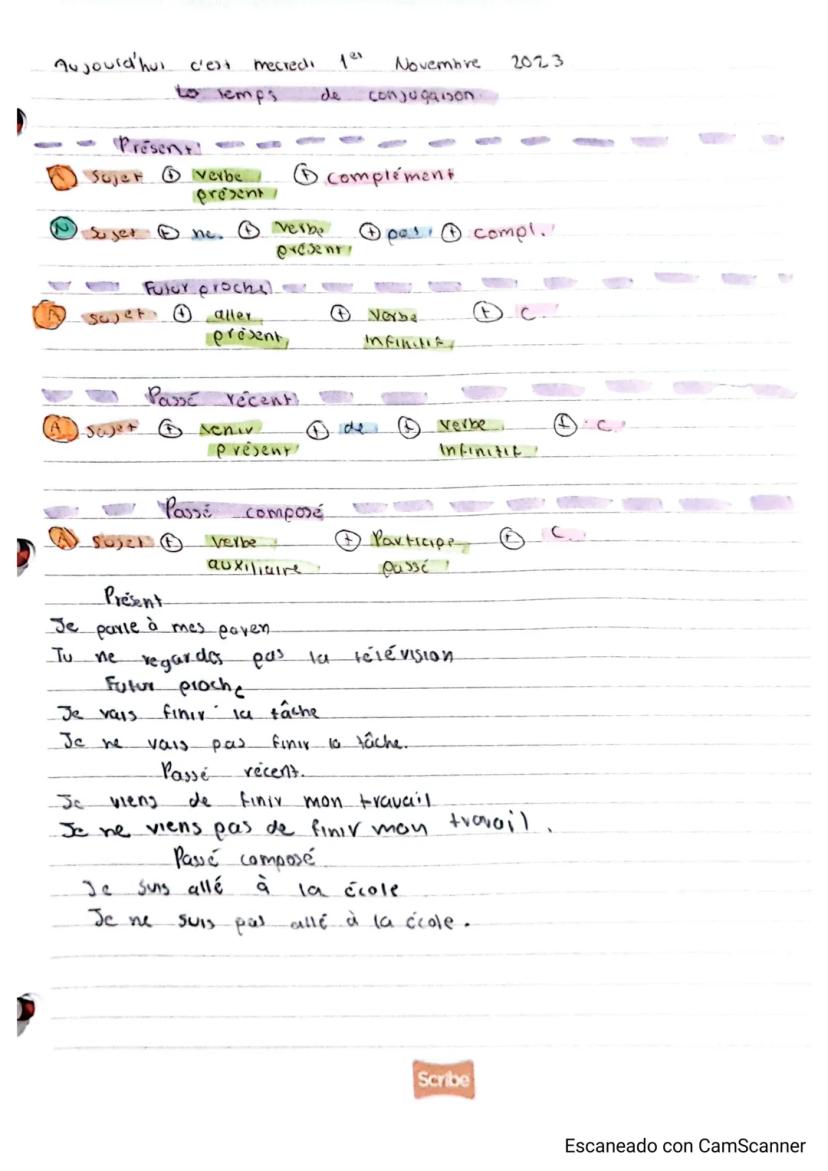 Aujourd'hui c'est mecredi 1er Novembre 2023
temps de conjugaison
Présent
A sujet + verbe présent + complément
N sujet + ne + verbe présent + pas + compl.
Futur proche
A sujet + aller présent + verbe infinitif + C.
Passé récent
A sujet + venir présent + de + verbe infinitif + C.
Passé composé
A sujet + verbe auxiliaire + Participe passé + C.
Présent
Je parle à mes payen
Tu ne regardas pas la télévision
Futur proche
Je vais finir la tâche
Je ne vais pas finir la tâche.
Passé récent.
Je viens de finir mon travail
Je ne viens pas de finir mon travail.
Passé composé
Je suis allé à la école
Je ne suis pas allé à la école.
Scribe
Escaneado con CamScanner